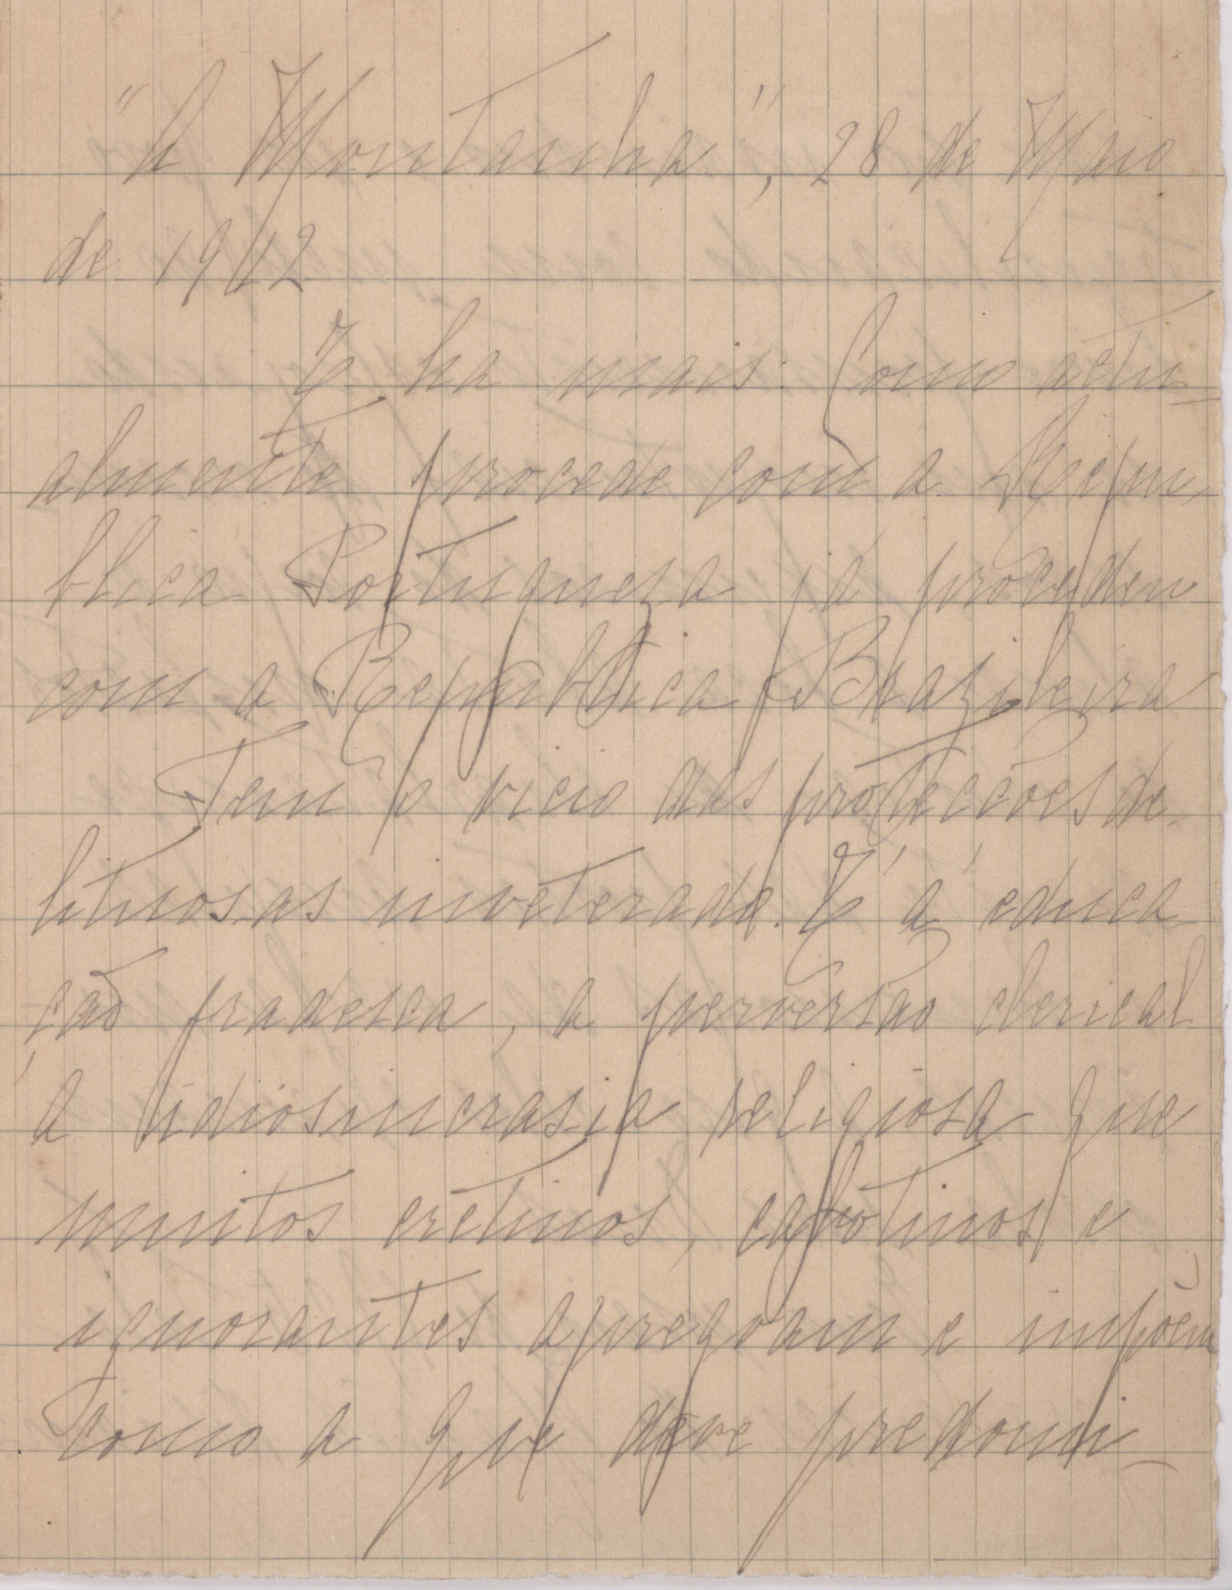 "A Montanha", 28 de Maio
de 1912
E ha mais: Como actu-
almente procede com a Repu-
blica Portugueza já procedeu
com a Republica Brazileira
Tem o vicio das protecções de-
lituosas inveterado. E' a educa
ção fradesca, a perversão clerical
a idiosincrasia religiosa que
muitos cretinos, cabotinos e
ignorantes apregoam e impõem
como a que deve predomi-